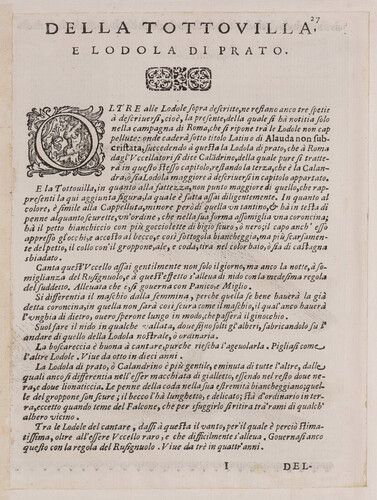 27
DELLA TOTTOVILLA,
E LODOLA DI PRATO.
OLTRE alle Lodole sopra descritte, ne restano anco tre spetie
à descriuersi, cioè, la presente, della quale si hà notitia solo
nella campagna di Roma, che si ripone trà le Lodole non cap
pellute: onde caderà sotto titolo Latino di Alauda non sub-
cristata, succedendo à questa la Lodola di prato, che à Roma
dagl'Vccellatori si dice Caladrino, della quale pure si tratte-
rà in questo stesso capitolo, restando la terza, che è la Calan-
dra, ò sia Lodola maggiore à descriuersi in capitolo appartato.
E la Tottouilla, in quanto alla fattezza, non punto maggiore di quello, che rap-
presenti la quì aggiunta figura, la quale è fatta assai diligentemente. In quanto al
colore, è simile alla Cappelluta, minore però di quella vn tantino, & hà in testa di
penne alquanto scurette, vn'ordine, che nella sua forma assomiglia vna coroncina;
hà il petto bianchiccio con più gocciolette di bigio scuro, ò nero; il capo anch' esso
appresso gl'occhi, e accosto al becco, e così sottogola biancheggia, ma più scarsamen-
te del petto, il collo con il groppone, ale, e coda, tira nel color baio, ò sia di castagna
sbiadato.
Canta quest'Vccello assai gentilmente non solo il giorno, ma anco la notte, à so-
miglianza del Rusignuolo, e à quest'effetto s'alleua di nido con la medesima regola
del suddetto. Alleuata che è, si gouerna con Panico, e Miglio.
Si differentia il maschio dalla femmina, perche quella se bene hauerà la già
detta coroncina, in quella non sarà così scura come il maschio, il qual'anco hauerà
l'vnghia di dietro, ouero sperone lungo in modo, che passerà il ginocchio.
Suol fare il nido in qualche vallata, doue sijno folti gl'alberi, fabricandolo su l'
andare di quello della Lodola nostrale, ò ordinaria.
La boscareccia è buona à cantare, purche riesca l'ageuolarla. Pigliasi come
l'altre Lodole. Viue da otto in dieci anni.
La Lodola di prato, ò Calandrino è più gentile, e minuta di tutte l'altre, dalle
quali anco si differentia nell'esser macchiata di gialletto, essendo nel resto doue ne-
ra, e doue lionaticcia. Le penne della coda nella sua estremità biancheggiano; quel-
le del groppone son scure; il becco l'hà lunghetto, e delicato; stà d'ordinario in ter-
ra, eccetto quando teme del Falcone, che per sfuggirlo si ritira trà rami di qualch'
albero vicino.
Tra le Lodole del cantare, dassi à questa il vanto, per il quale è perciò stima-
tissima, oltre all'essere Vccello raro, e che difficilmente s'alleua. Gouernasi anco
questo con la regola del Rusignuolo. Viue da trè in quattr'anni.
I DEL-